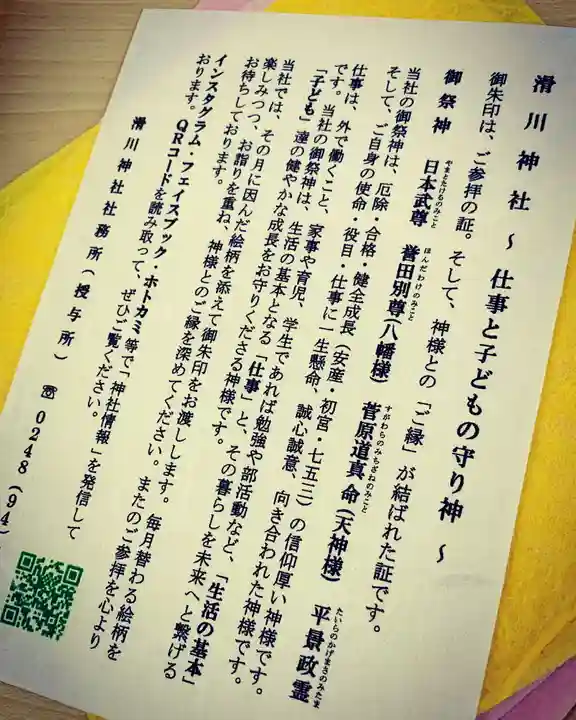 滑川神社 ～ 仕事と子どもの守り神 ～
御朱印は、ご参拝の証。そして、神様との「ご縁」が結ばれた証です。
御祭神 日本武尊 誉田別尊(八幡様) 菅原道真命(天神様) 平景政霊
やまとたけるのみこと ほんだわけのみこと すがわらのみちざねのみこと たいらのかげまさのみたま
当社の御祭神は、厄除・合格・健全成長(安産・初宮・七五三)の信仰厚い神様です。
そして、ご自身の使命・役目・仕事に一生懸命、誠心誠意、向き合われた神様です。
仕事は、外で働くこと、家事や育児、学生であれば勉強や部活動など、「生活の基本」
です。当社の御祭神は、生活の基本となる「仕事」と、その暮らしを未来へと繋げる
「子ども」達の健やかな成長をお守りくださる神様です。
当社では、その月に因んだ絵柄を添えて御朱印をお渡しします。毎月替わる絵柄を
楽しみつつ、お詣りを重ね、神様とのご縁を深めてください。またのご参拝を心より
お待ちしております。
インスタグラム・フェイスブック・ホトカミ等で「神社情報」を発信して
おります。QRコードを読み取って、ぜひご覧ください。
滑川神社社務所(授与所) ☎0248(94)